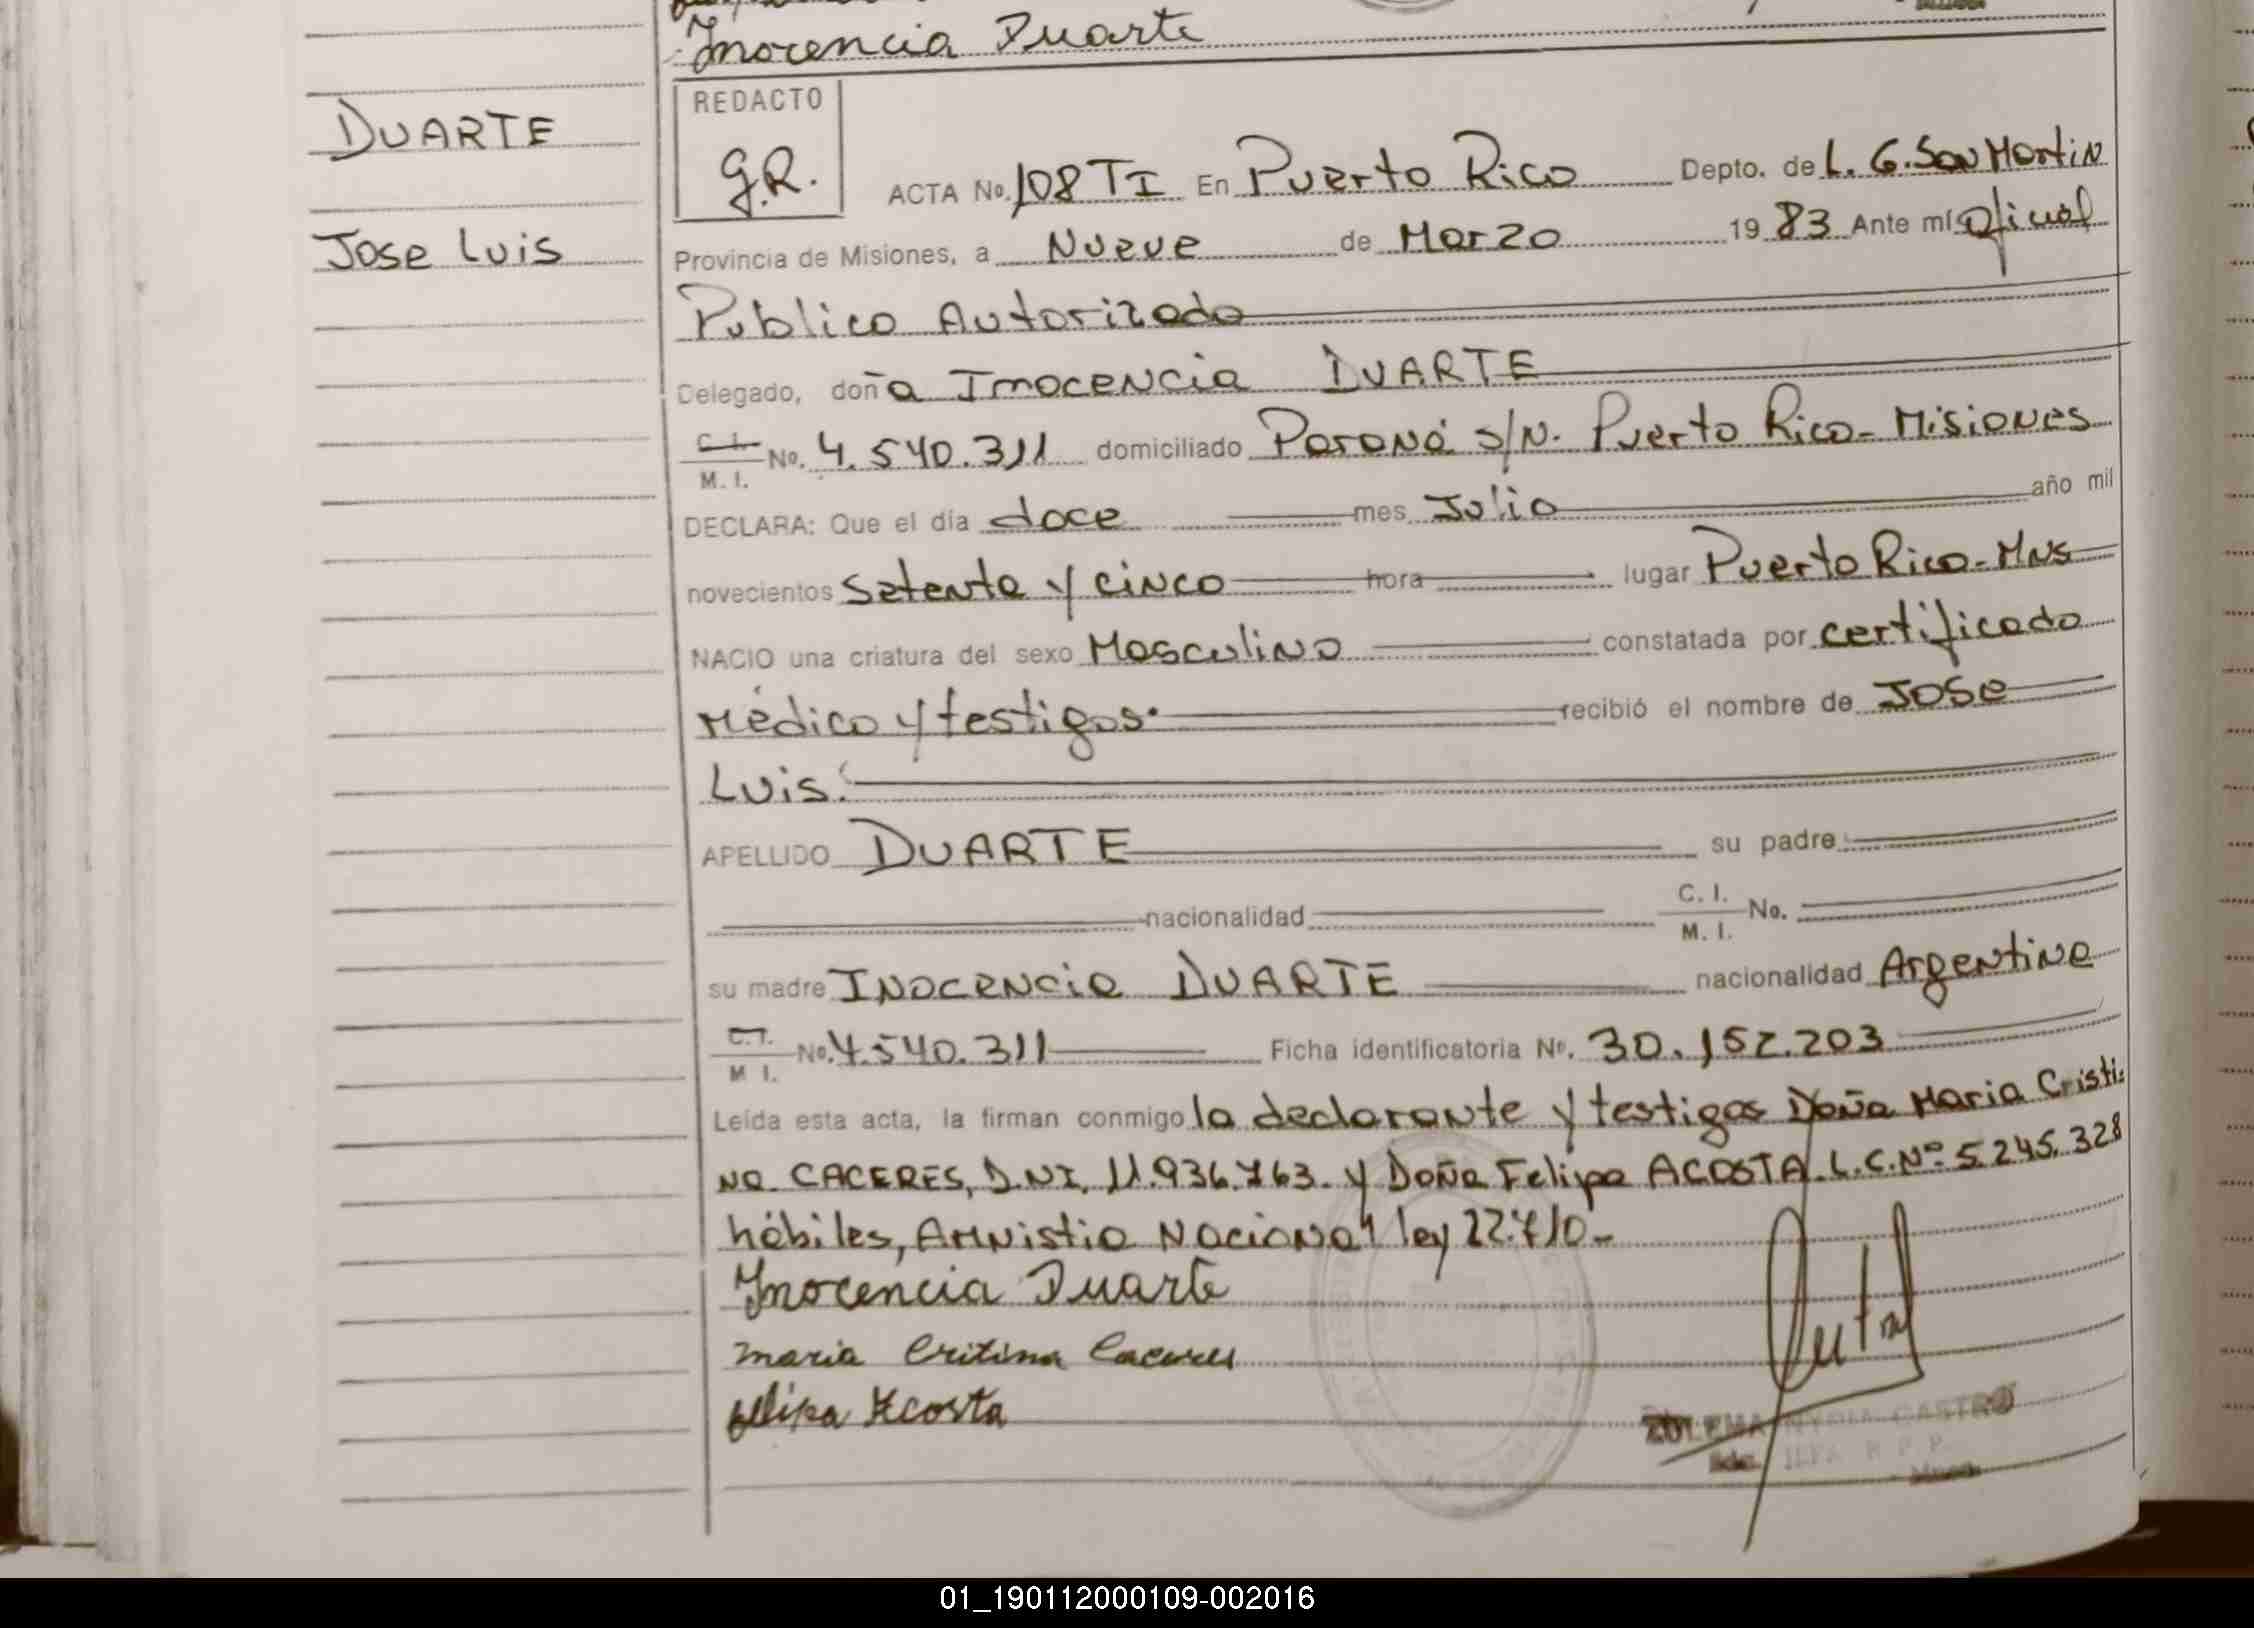 Inocencia Duarte
DUARTE
Jose Luis
REDACTO
G.R.
ACTA No. 108 TI En Puerto Rico Depto. de L. G. San Martin
Provincia de Misiones, a Nueve de Marzo 1983 Ante mí Oficial
Publico Autorizado
Delegado, doña Inocencia DUARTE
C. I.
M. I. No. 4.540.311 domiciliado Paraná s/N. Puerto Rico - Misiones
DECLARA: Que el día doce mes Julio año mil
novecientos Setenta y cinco hora lugar Puerto Rico - Mns
NACIO una criatura del sexo Masculino constatada por certificado
Médico y testigos. recibió el nombre de Jose
Luis.
APELLIDO DUARTE su padre
nacionalidad C. I.
M. I. No.
su madre INOCENCIA DUARTE nacionalidad Argentina
C. I.
M I. No. 4.540.311 Ficha identificatoria Nº. 30.152.203
Leída esta acta, la firman conmigo la declarante y testigos Doña Maria Cristi-
na CACERES, D.N.I. 11.936.763. y Doña Felipa ACOSTA. L.C.Nº. 5.245.328
hábiles, Amnistia Nacional ley 22.710.-
Inocencia Duarte
maria Critina Caceres
felipa Acosta
ZULEMA NYDIA CASTRO
01_190112000109-002016